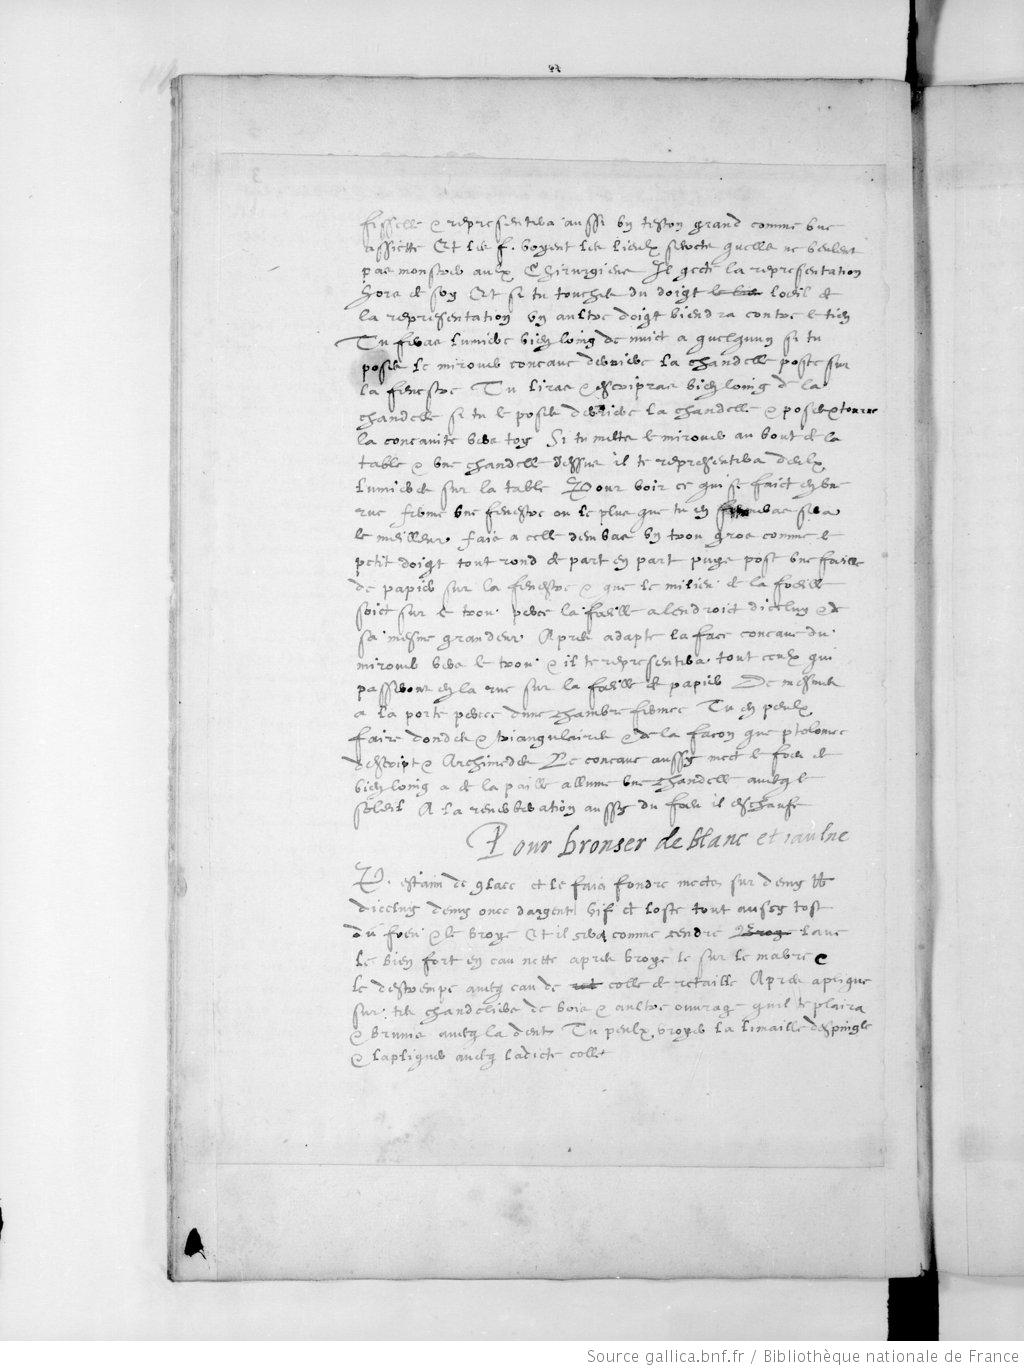 fisselle & representera aussi un teston grand comme une
assiette Et les f. voyent les lieulx secrets quelles ne veulent
pas monstrer aulx Chirurgiens Il gecte la representation
hors de soy Et si tu touches du doigt loeil de
la representation un aultre doigt viendra contre le tien
Tu feras lumiere bien loing de nuict a quelquun si tu
poses le mirouer concave derriere la chandelle posee sur
la fenestre Tu liras & escripras bien loing de la
chandelle si tu le poses derriere la chandelle & poses & tourne
la concavite vers toy Si tu mects le mirouer au bout de la
table & une chandelle dessus il te representera deulx
lumieres sur la table Pour voir ce qui se faict en une
rue ferme une fenestre ou le plus que tu en fermeras sera
le meilleur fais a celle dembas un trou gros comme le
petit doigt tout rond de part en part puys pose une foeille
de papier sur la fenestre & que le milieu de la foeille
soict sur le trou perce la foeille a lendroict dicelluy & de
sa mesme grandeur Apres adapte la face concave du
mirouer vers le trou & il te representera tout ceulx qui
passeront en la rue sur la foeille de papier De mesmes
a la porte percee dune chambre fermee Tu en peulx
faire dondes & triangulaires & de la façon que ptolomee
descript & Archimedes Le concave aussy mect le foeu de
bien loing a de la paille allume une chandelle avecq le
soleil A la reverberation aussy du foeu il eschaufe
Pour bronser de blanc et jaulne
P. estaim de glace et le fais fondre mects sur demy lb
dicelluy demy once dargent vif et loste tout aussy tost
du foeu & le broye Et il sera comme cendre broy lave
le bien fort en eau nette apres broye le sur le mabre &
le destrempe avecq eau de colle de retaille Apres aplique
sur tes chandeliers de bois & aultre ouvrage quil te plaira
& brunis avecq la dent Tu peulx broyer la limaille despingle
& lapliquer avecq ladicte colle
Source gallica.bnf.fr / Bibliothèque nationale de France